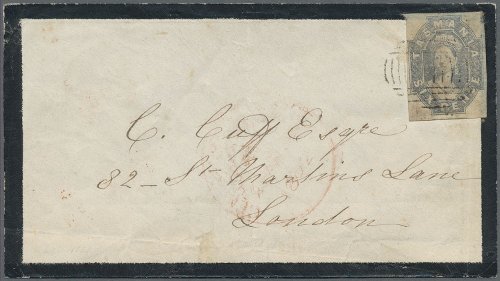 TASMANIA
C. Cuff Esqre
82 - St Martins Lane
London